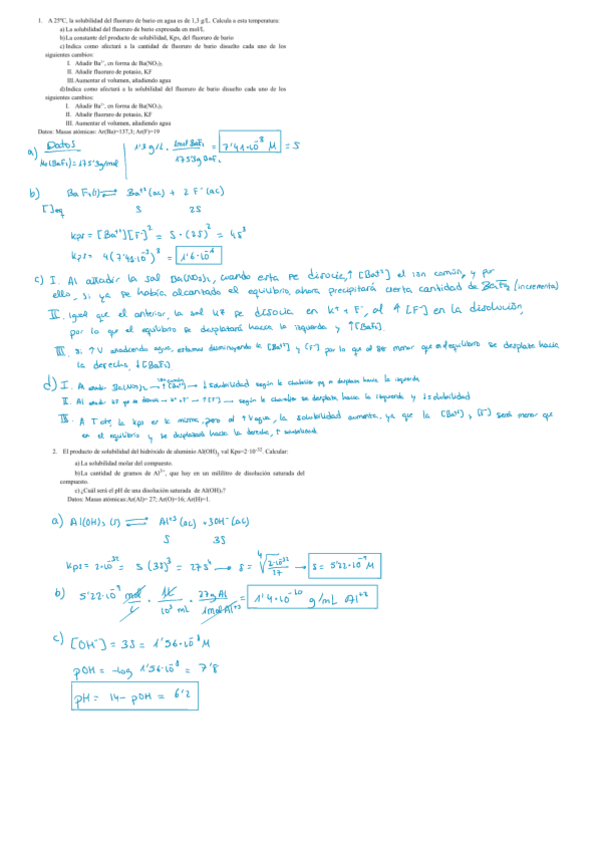 1. A 25ºC, la solubilidad del fluoruro de bario en agua es de 1,3 g/L. Calcula a esta temperatura:
a) La solubilidad del fluoruro de bario expresada en mol/L
b) La constante del producto de solubilidad, Kps, del fluoruro de bario
c) Indica como afectará a la cantidad de fluoruro de bario disuelto cada uno de los
siguientes cambios:
I. Añadir Ba²⁺, en forma de Ba(NO₃)₂
II. Añadir fluoruro de potasio, KF
III. Aumentar el volumen, añadiendo agua
d) Indica como afectará a la solubilidad del fluoruro de bario disuelto cada uno de los
siguientes cambios:
I. Añadir Ba²⁺, en forma de Ba(NO₃)₂
II. Añadir fluoruro de potasio, KF
III. Aumentar el volumen, añadiendo agua
Datos: Masas atómicas: Ar(Ba)=137,3; Ar(F)=19
a) Datos
Mr(BaF₂)=175'3g/mol
1'3 g/L · 1mol BaF₂ / 175'3g BaF₂ = 7'41·10⁻³ M = S
b) BaF₂(s) ⇌ Ba⁺²(ac) + 2 F⁻(ac)
[ ]eq S 2S
Kps = [Ba⁺²][F⁻]² = S · (2S)² = 4S³
Kps = 4(7'41·10⁻³)³ = 1'6·10⁻⁶
c) I. Al añadir la sal Ba(NO₃)₂, cuando esta se disocia, ↑ [Ba⁺²] el ion común, y por
ello, si ya se había alcanzado el equilibrio, ahora precipitará cierta cantidad de BaF₂ (incrementa)
II. Igual que el anterior, la sal KF se disocia en K⁺ + F⁻, al ↑ [F⁻] en la disolución,
por lo que el equilibrio se desplatará hacia la izquierda y ↑[BaF₂].
III. Si ↑V añadiendo agua, estamos disminuyendo la [Ba⁺²] y [F⁻] por lo que al ser menor que en el equilibrio se desplata hacia
la derecha, ↓[BaF₂]
d) I. Al añadir Ba(NO₃)₂ → ↑[Ba⁺²] → ↓ solubilidad según le chatelier pq se desplata hacia la izquierda
II. Al añadir KF que se disocia → K⁺ + F⁻ → ↑[F⁻] → según le chatelier se desplata hacia la izquierda y ↓ solubilidad.
III. A T cte, la Kps es la misma, pero al ↑V agua, la solubilidad aumenta, ya que la [Ba⁺²] y [F⁻] será menor que
en el equilibrio y se desplazará hacia la derecha, ↑ solubilidad.
2. El producto de solubilidad del hidróxido de aluminio Al(OH)₃ val Kps=2·10⁻³². Calcular:
a) La solubilidad molar del compuesto.
b) La cantidad de gramos de Al³⁺, que hay en un mililitro de disolución saturada del
compuesto.
c) ¿Cuál será el pH de una disolución saturada de Al(OH)₃?
Datos: Masas atómicas Ar(Al)= 27; Ar(O)=16; Ar(H)=1.
a) Al(OH)₃ (s) ⇌ Al⁺³(ac) + 3OH⁻(ac)
S 3S
Kps = 2·10⁻³² = S (3S)³ = 27S⁴ → S = ⁴√(2·10⁻³² / 27) → S = 5'22·10⁻⁹ M
b) 5'22·10⁻⁹ mol/L · 1L / 10³ mL · 27g Al / 1mol Al⁺³ = 1'4·10⁻¹⁰ g/mL Al⁺³
c) [OH⁻] = 3S = 1'56·10⁻⁸ M
pOH = -log 1'56·10⁻⁸ = 7'8
pH = 14 - pOH = 6'2